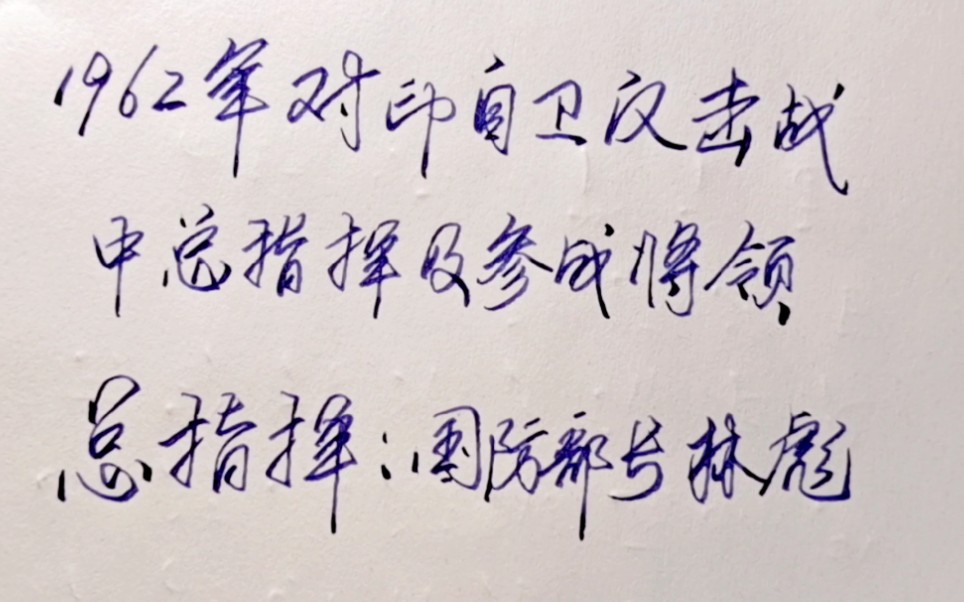 1962年对印自卫反击战
中总指挥及参战将领
总指挥:国防部长林彪